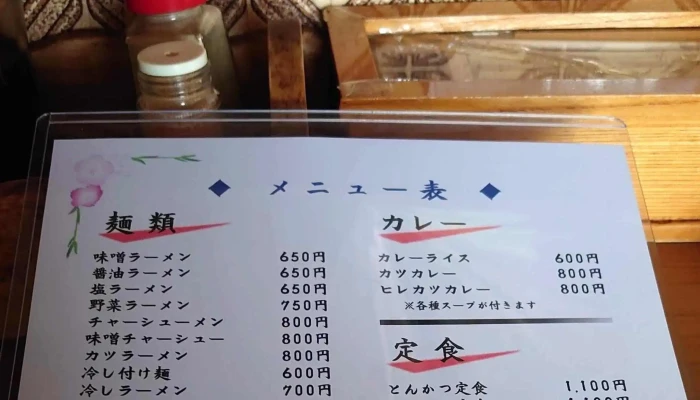 ◆ メニュー表 ◆
麺類
味噌ラーメン 650円
醤油ラーメン 650円
塩ラーメン 650円
野菜ラーメン 750円
チャーシューメン 800円
味噌チャーシュー 800円
カツラーメン 800円
冷し付け麺 600円
冷しラーメン 700円
カレー
カレーライス 600円
カツカレー 800円
ヒレカツカレー 800円
※各種スープが付きます
定食
とんかつ定食 1,100円